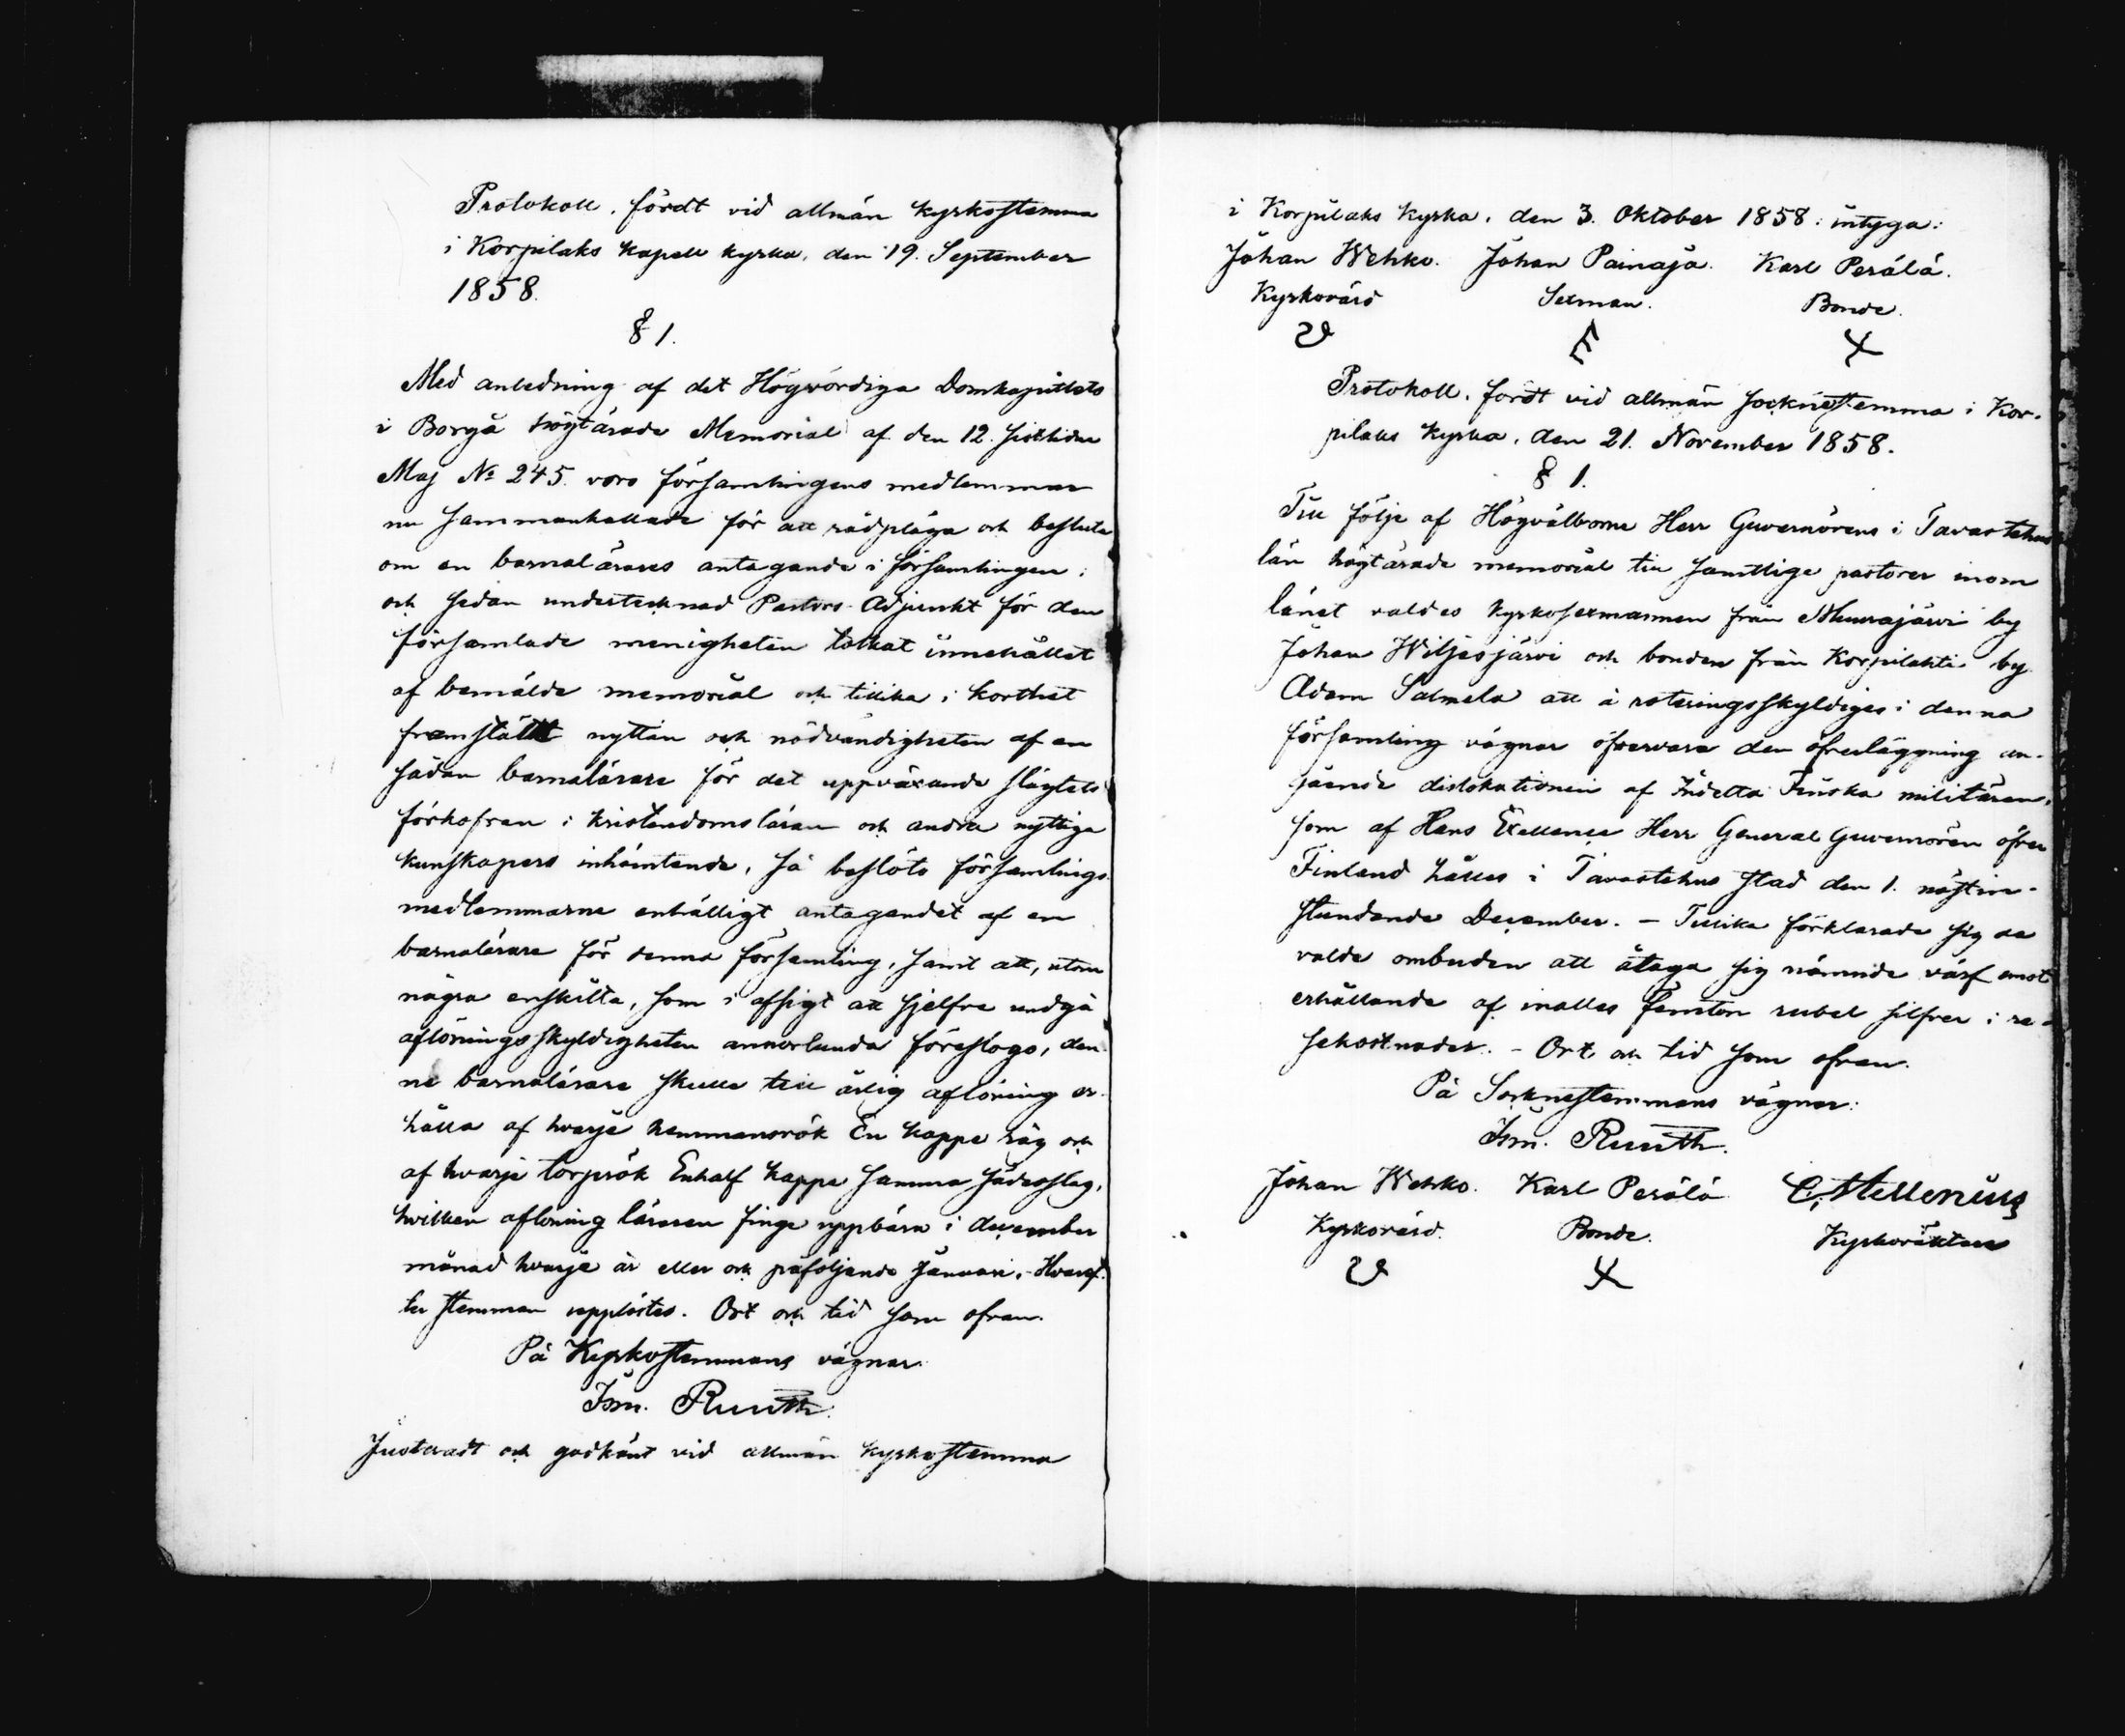 Protokoll, fördt vid allmän kyrkostemma
i Korpilaks kapell kyrka, den 19. September
1858.
§ 1.
Med anledning af det Högvördiga Domkapitlets
i Borgå högtärade Memorial af den 12. sistlidne
Maj No 245. voro församlingens medlemmar
nu sammankallade för att rådpläga och besluta
om en barnalärares antagande i församlingen;
och sedan undertecknad Pastors-Adjunkt för den
församlade menigheten tolkat innehållet
af bemälde memorial och tillika i korthet
framstält nyttan och nödvändigheten af en
sådan barnalärare för det uppväxande slägtets
förkofran i kristendomsläran och andra nyttiga
kunskapers inhämtande, så beslöto församlings
medlemmarne enhälligt antagandet af en
barnalärare för denna församling, samt att, utom
några enskilta, som i afsigt att sjelfve undgå
aflöningsskyldigheten annorlunda föreslogo, den-
ne barnalärare skulle till årlig aflöning er-
hålla af hvarje hemmansrök En kappe råg och
af hvarje torprök Enhalf kappe samma sädesslag,
hvilken aflöning läraren finge uppbära i december
månad hvarje år eller och påföljande Januari. - Hvaref-
ter stemman upplöstes. Ort och tid som ofvan.
På Kyrkostemmans vägnar:
Ism. Ruuth.
Justeradt och godkänt vid allmän kyrkostemma
i Korpilaks kyrka, den 3. Oktober 1858; intyga:
Johan Wehko. Johan Painaja. Karl Perälä.
Kyrkovärd Sexman. Bonde.
Protokoll, fördt vid allmän socknestemma i Kor-
pilaks kyrka, den 21. November 1858.
§ 1.
Till följe af Högvälborne Herr Guvernörens i Tavastehus
län högtärade memorial till samtlige pastorer inom
länet valdes kyrkosexmannen från Muurajärvi by
Johan Wiljasjärvi och bonden från Korpilahti by
Adam Salmela att å roteringsskyldiges i denna
församling vägnar öfvervara den öfverläggning an-
gående dislokationen af Indelta Finska militären,
som af Hans Exellence Herr General Guvernören öfver
Finland hålles i Tavastehus stad den 1. nästin-
stundande December. - Tillika förklarade sig de
valde ombuden att åtaga sig nämnde värf emot
erhållande af inalles femton rubel silfver i re-
sekostnader. - Ort och tid som ofvan.
På Socknestemmans vägnar:
Ism. Ruuth.
Johan Wehko. Karl Perälä C. Mellenius
Kyrkovärd. Bonde. Kyrkoväktare